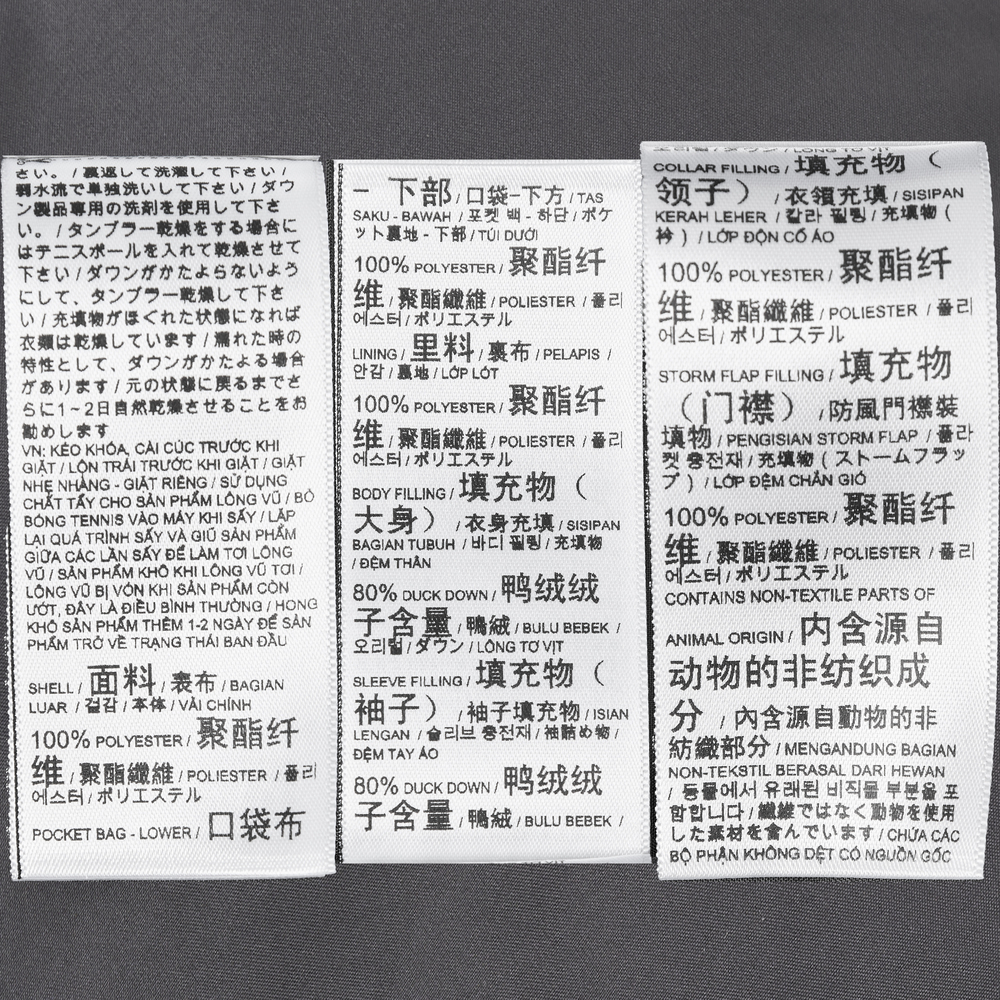 さい。/ 裏返して洗濯して下さい /
弱水流で単独洗いして下さい / ダウ
ン製品専用の洗剤を使用して下さ
い。/ タンブラー乾燥をする場合に
はテニスボールを入れて乾燥させて
下さい / ダウンがかたよらないよう
にして、タンブラー乾燥して下さ
い / 充填物がほぐれた状態になれば
衣類は乾燥しています / 濡れた時の
特性として、ダウンがかたよる場合
があります / 元の状態に戻るまでさ
らに1~2日自然乾燥させることをお
勧めします
VN: KÉO KHÓA, CÀI CÚC TRƯỚC KHI
GIẶT / LỘN TRÁI TRƯỚC KHI GIẶT / GIẶT
NHẸ NHÀNG - GIẶT RIÊNG / SỬ DỤNG
CHẤT TẨY CHO SẢN PHẨM LÔNG VŨ / BỎ
BÓNG TENNIS VÀO MÁY KHI SẤY / LẶP
LẠI QUÁ TRÌNH SẤY VÀ GIŨ SẢN PHẨM
GIỮA CÁC LẦN SẤY ĐỂ LÀM TƠI LÔNG
VŨ / SẢN PHẨM KHÔ KHI LÔNG VŨ TƠI /
LÔNG VŨ BỊ VÓN KHI SẢN PHẨM CÒN
ƯỚT, ĐÂY LÀ ĐIỀU BÌNH THƯỜNG / HONG
KHÔ SẢN PHẨM THÊM 1-2 NGÀY ĐỂ SẢN
PHẨM TRỞ VỀ TRẠNG THÁI BAN ĐẦU
SHELL / 面料 / 表布 / BAGIAN
LUAR / 겉감 / 本体 / VẢI CHÍNH
100% POLYESTER / 聚酯纤
维 / 聚酯纖維 / POLIESTER / 폴리
에스터 / ポリエステル
POCKET BAG - LOWER / 口袋布
- 下部 / 口袋-下方 / TAS
SAKU - BAWAH / 포켓 백 - 하단 / ポケ
ット裏地 - 下部 / TÚI DƯỚI
100% POLYESTER / 聚酯纤
维 / 聚酯纖維 / POLIESTER / 폴리
에스터 / ポリエステル
LINING / 里料 / 裏布 / PELAPIS /
안감 / 裏地 / LỚP LÓT
100% POLYESTER / 聚酯纤
维 / 聚酯纖維 / POLIESTER / 폴리
에스터 / ポリエステル
BODY FILLING / 填充物（
大身） / 衣身充填 / SISIPAN
BAGIAN TUBUH / 바디 필링 / 充填物
/ ĐỆM THÂN
80% DUCK DOWN / 鸭绒绒
子含量 / 鴨絨 / BULU BEBEK /
오리털 / ダウン / LÔNG TƠ VỊT
SLEEVE FILLING / 填充物（
袖子） / 袖子填充物 / ISIAN
LENGAN / 슬리브 충전재 / 袖詰め物 /
ĐỆM TAY ÁO
80% DUCK DOWN / 鸭绒绒
子含量 / 鴨絨 / BULU BEBEK /
오리털 / ダウン / LÔNG TƠ VỊT
COLLAR FILLING / 填充物（
领子） / 衣領充填 / SISIPAN
KERAH LEHER / 칼라 필링 / 充填物 (
衿 ) / LỚP ĐỘN CỔ ÁO
100% POLYESTER / 聚酯纤
维 / 聚酯纖維 / POLIESTER / 폴리
에스터 / ポリエステル
STORM FLAP FILLING / 填充物
（门襟） / 防風門襟裝
填物 / PENGISIAN STORM FLAP / 플라
켓 충전재 / 充填物 ( ストームフラッ
プ ) / LỚP ĐỆM CHẮN GIÓ
100% POLYESTER / 聚酯纤
维 / 聚酯纖維 / POLIESTER / 폴리
에스터 / ポリエステル
CONTAINS NON-TEXTILE PARTS OF
ANIMAL ORIGIN / 内含源自
动物的非纺织成
分 / 內含源自動物的非
紡織部分 / MENGANDUNG BAGIAN
NON-TEKSTIL BERASAL DARI HEWAN
/ 동물에서 유래된 비직물 부분을 포
함합니다 / 繊維ではなく動物を使用
した素材を含んでいます / CHỨA CÁC
BỘ PHẬN KHÔNG DỆT CÓ NGUỒN GỐC